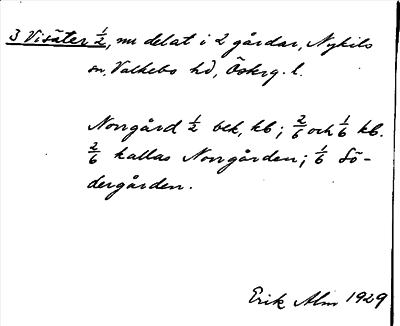 3 Visäter ½, nu delat i 2 gårdar, Nykils
sn, Valkebo hd, Öskrg. l.
Norrgård ½ bek, kb; 2/6 och 1/6 kb.
2/6 kallas Norrgården; 1/6 Sö-
dergården.
Erik Alm 1929